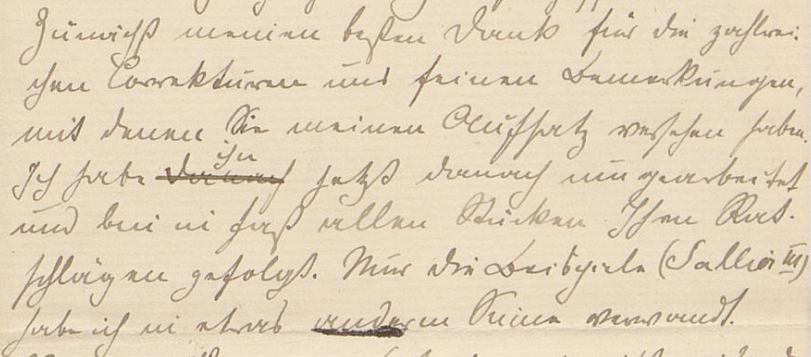 Zunächst meinen besten Dank für die zahlrei-
chen Correkturen und feinen Bemerkungen,
mit denen Sie meinen Aufsatz versehen haben.
ihn
Ich habe danach jetzt danach umgearbeitet
und bin in fast allen Stücken Ihren Rat-
schlägen gefolgt. Nur die Beispiele (III)
habe ich in etwas anderm Sinne verwandt.